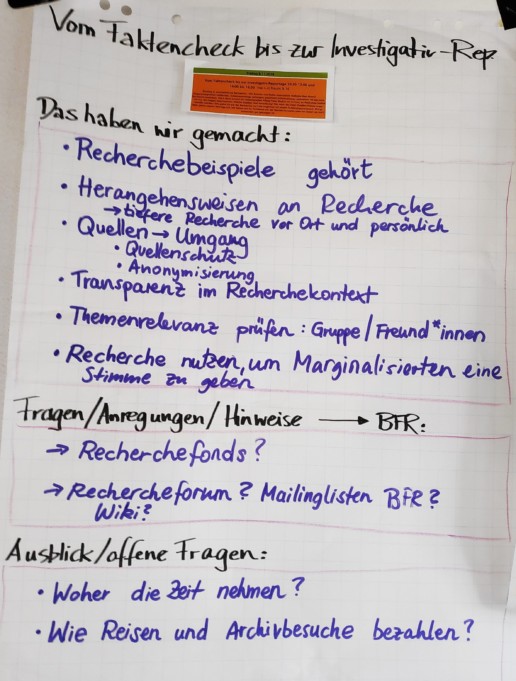 Vom Faktencheck bis zur Investigativ-Rep.
Das haben wir gemacht:
• Recherchebeispiele gehört
• Herangehensweisen an Recherche
→ tiefere Recherche vor Ort und persönlich
• Quellen → Umgang
• Quellenschutz
• Anonymisierung
• Transparenz im Recherchekontext
• Themenrelevanz prüfen: Gruppe/Freund*innen
• Recherche nutzen, um Marginalisierten eine
Stimme zu geben
Fragen/Anregungen/Hinweise → BFR:
→ Recherchefonds?
→ Rechercheforum? Mailinglisten BFR?
Wiki?
Ausblick/offene Fragen:
• Woher die Zeit nehmen?
• Wie Reisen und Archivbesuche bezahlen?